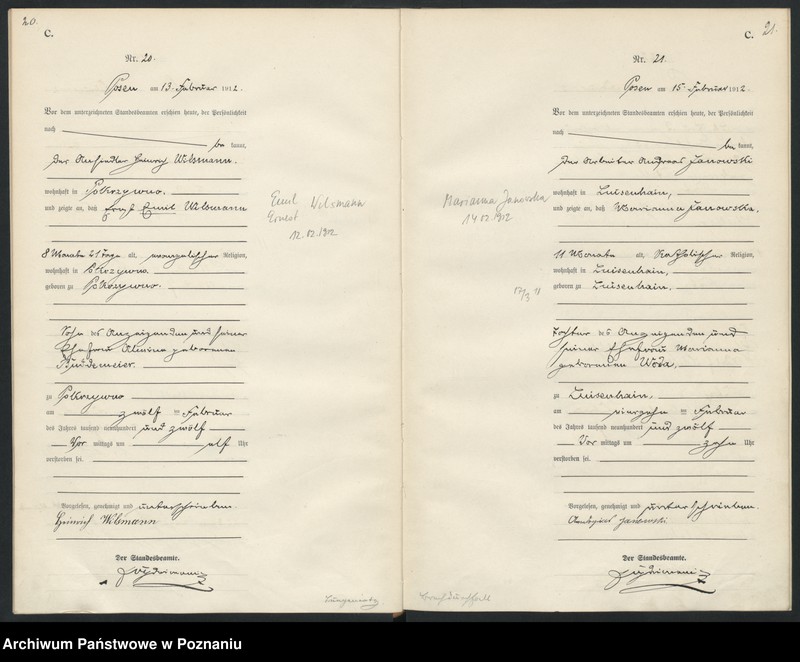 20.
C.
Nr. 20.
Posen am 13. Februar 1912.
Vor dem unterzeichneten Standesbeamten erschien heute, der Persönlichkeit
nach
be kannt,
der Ansiedler Heinrich Wilsmann.
wohnhaft in Pokrzywno.
und zeigte an, daß Ernst Emil Wilsmann
8 Monate 21 Tage alt, evangelischer Religion,
wohnhaft in Pokrzywno.
geboren zu Pokrzywno.
Sohn des Anzeigenden und seiner
Ehefrau Alwine geborenen
zu Pokrzywno
am zwölf ten Februar
des Jahres tausend neunhundert und zwölf
Vor mittags um elf Uhr
verstorben sei.
Vorgelesen, genehmigt und unterschrieben
Heinrich Wilsmann
Der Standesbeamte.
Emil Wilsmann
Ernest
12.02.1912
21.
C.
Nr. 21.
Posen am 15. Februar 1912.
Vor dem unterzeichneten Standesbeamten erschien heute, der Persönlichkeit
nach
be kannt,
der Arbeiter Andreas Janowski
wohnhaft in Luisenhain,
und zeigte an, daß Marianna Janowska,
11 Monate alt, katholischer Religion,
wohnhaft in Luisenhain,
geboren zu Luisenhain,
Tochter des Anzeigenden und
seiner Ehefrau Marianna
geborenen Woda,
zu Luisenhain,
am vierzehn ten Februar
des Jahres tausend neunhundert und zwölf
Vor mittags um zehn Uhr
verstorben sei.
Vorgelesen, genehmigt und unterschrieben.
Janowski
Der Standesbeamte.
Marianna Janowska
14.02.1912
Brechdurchfall
Archiwum Państwowe w Poznaniu